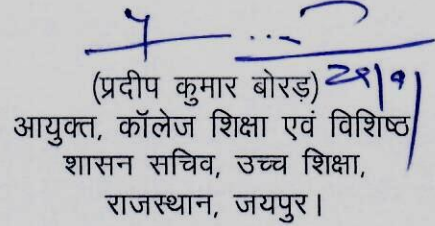 (प्रदीप कुमार बोरड़)
आयुक्त, कॉलेज शिक्षा एवं विशिष्ठ
शासन सचिव, उच्च शिक्षा,
राजस्थान, जयपुर।